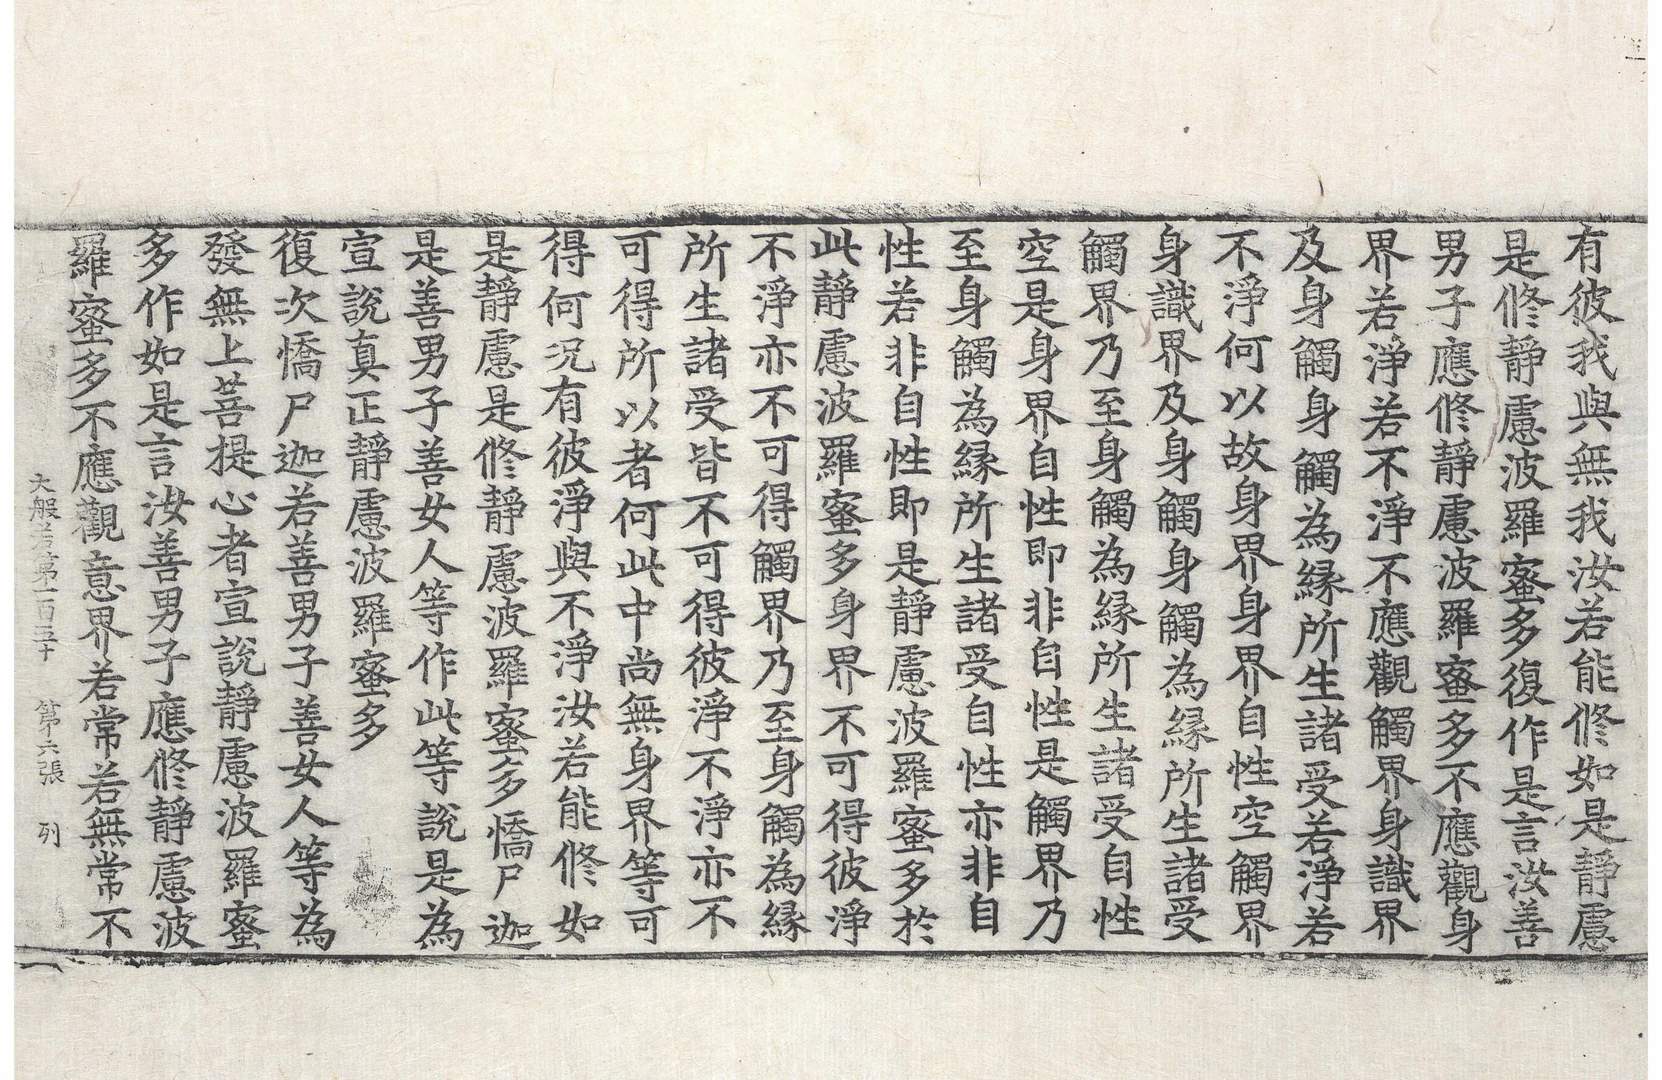 有彼我與無我汝若能修如是靜慮
是修靜慮波羅蜜多復作是言汝善
男子應修靜慮波羅蜜多不應觀身
界若淨若不淨不應觀觸界身識界
及身觸身觸為緣所生諸受若淨若
不淨何以故身界身界自性空觸界
身識界及身觸身觸為緣所生諸受
觸界乃至身觸為緣所生諸受自性
空是身界自性即非自性是觸界乃
至身觸為緣所生諸受自性亦非自
性若非自性即是靜慮波羅蜜多於
此靜慮波羅蜜多身界不可得彼淨
不淨亦不可得觸界乃至身觸為緣
所生諸受皆不可得彼淨不淨亦不
可得所以者何此中尚無身界等可
得何況有彼淨與不淨汝若能修如
是靜慮是修靜慮波羅蜜多憍尸迦
是善男子善女人等作此等說是為
宣說真正靜慮波羅蜜多
復次憍尸迦若善男子善女人等為
發無上菩提心者宣說靜慮波羅蜜
多作如是言汝善男子應修靜慮波
羅蜜多不應觀意界若常若無常不
大般若第一百五十 第六張 列